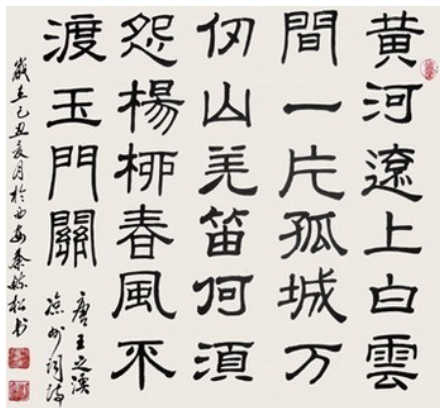 黄河遠上白雲
間一片孤城万
仞山羌笛何須
怨楊柳春風不
渡玉門關
唐王之渙
涼州詞詩
歲在己丑夏月於西安秦毓松书